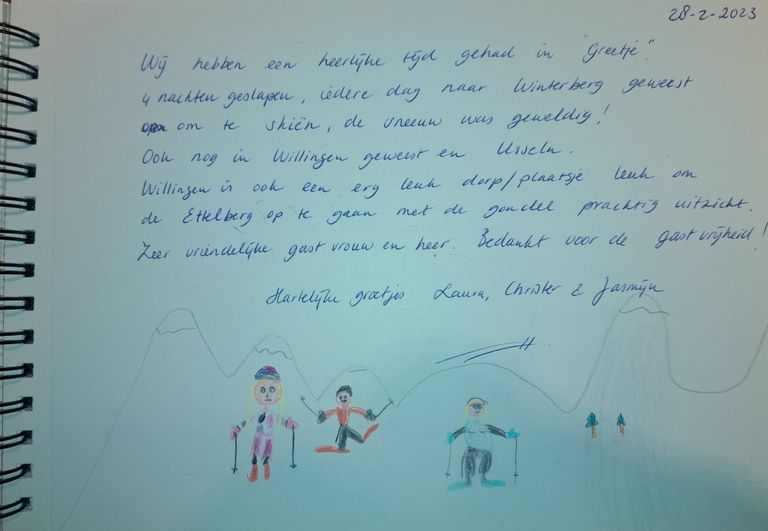 28-2-2023
Wij hebben een heerlijke tijd gehad in "Greetje".
4 nachten geslapen, iedere dag naar Winterberg geweest
om te skiën, de sneeuw was geweldig!
Ook nog in Willingen geweest en Usseln.
Willingen is ook een erg leuk dorp/plaatsje leuk om
de Ettelberg op te gaan met de gondel prachtig uitzicht.
Zeer vriendelijke gastvrouw en heer. Bedankt voor de gastvrijheid!
Hartelijke groetjes Laura, Christer & Jasmijn